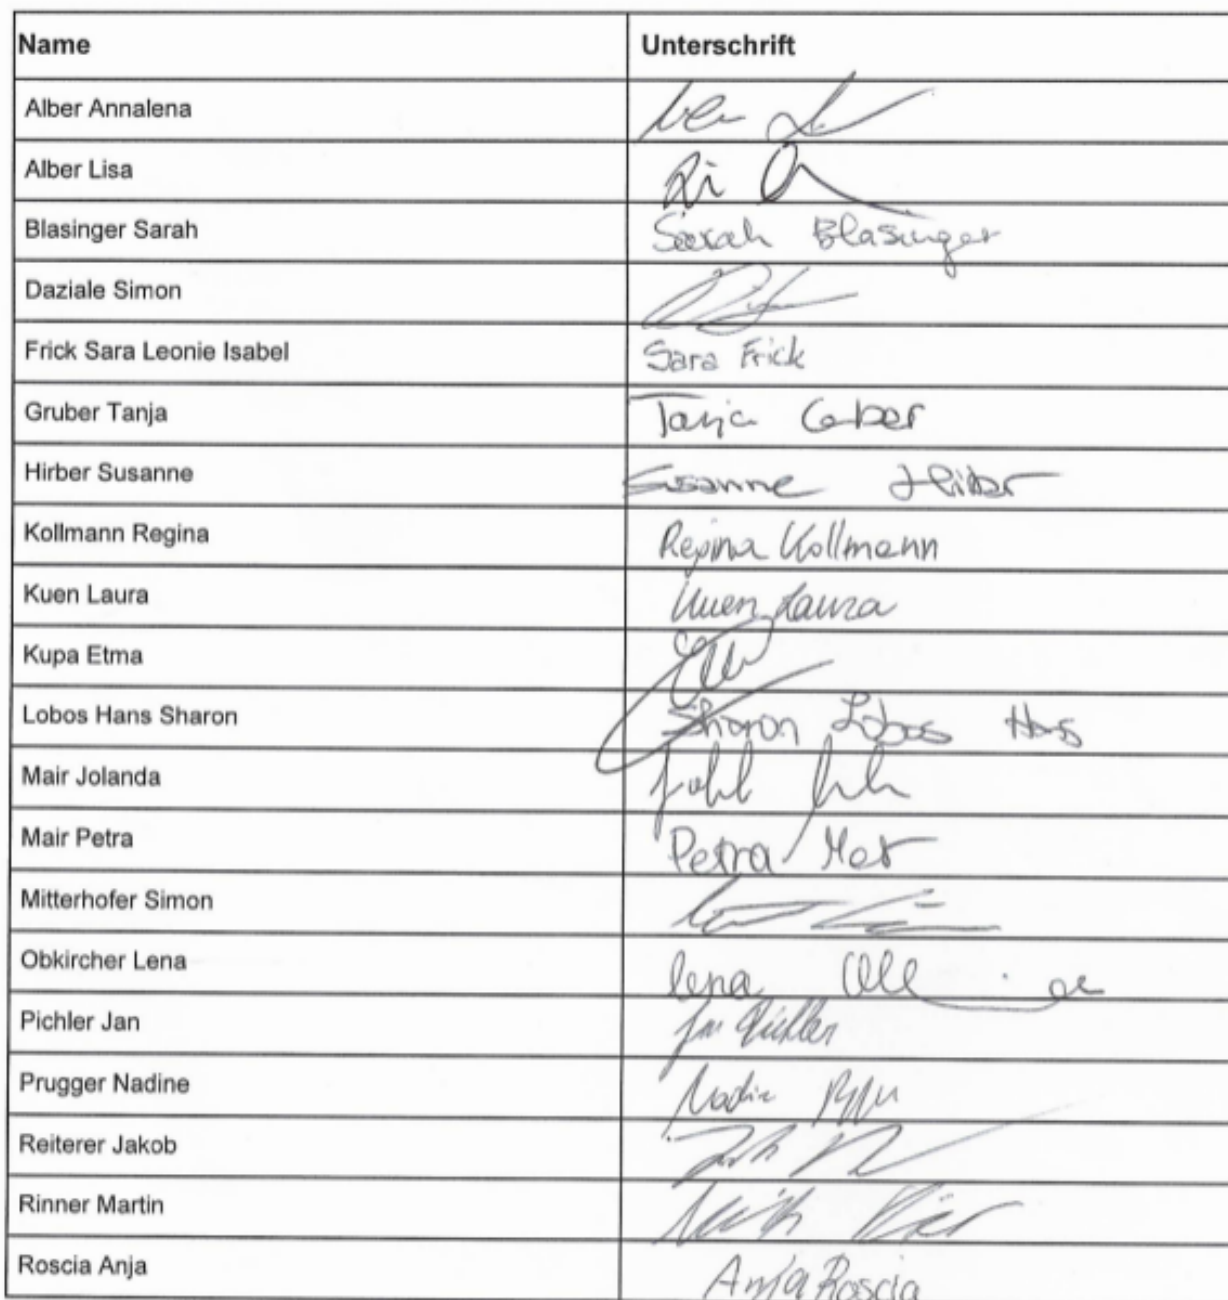 Name Unterschrift
Alber Annalena
Alber Lisa
Blasinger Sarah Sarah Blasinger
Daziale Simon
Frick Sara Leonie Isabel Sara Frick
Gruber Tanja Tanja
Hirber Susanne Susanne Hirber
Kollmann Regina Regina Kollmann
Kuen Laura Kuen Laura
Kupa Etma
Lobos Hans Sharon Sharon Lobos Hans
Mair Jolanda
Mair Petra Petra
Mitterhofer Simon
Obkircher Lena lena
Pichler Jan Jan Pichler
Prugger Nadine
Reiterer Jakob
Rinner Martin
Roscia Anja Anja Roscia